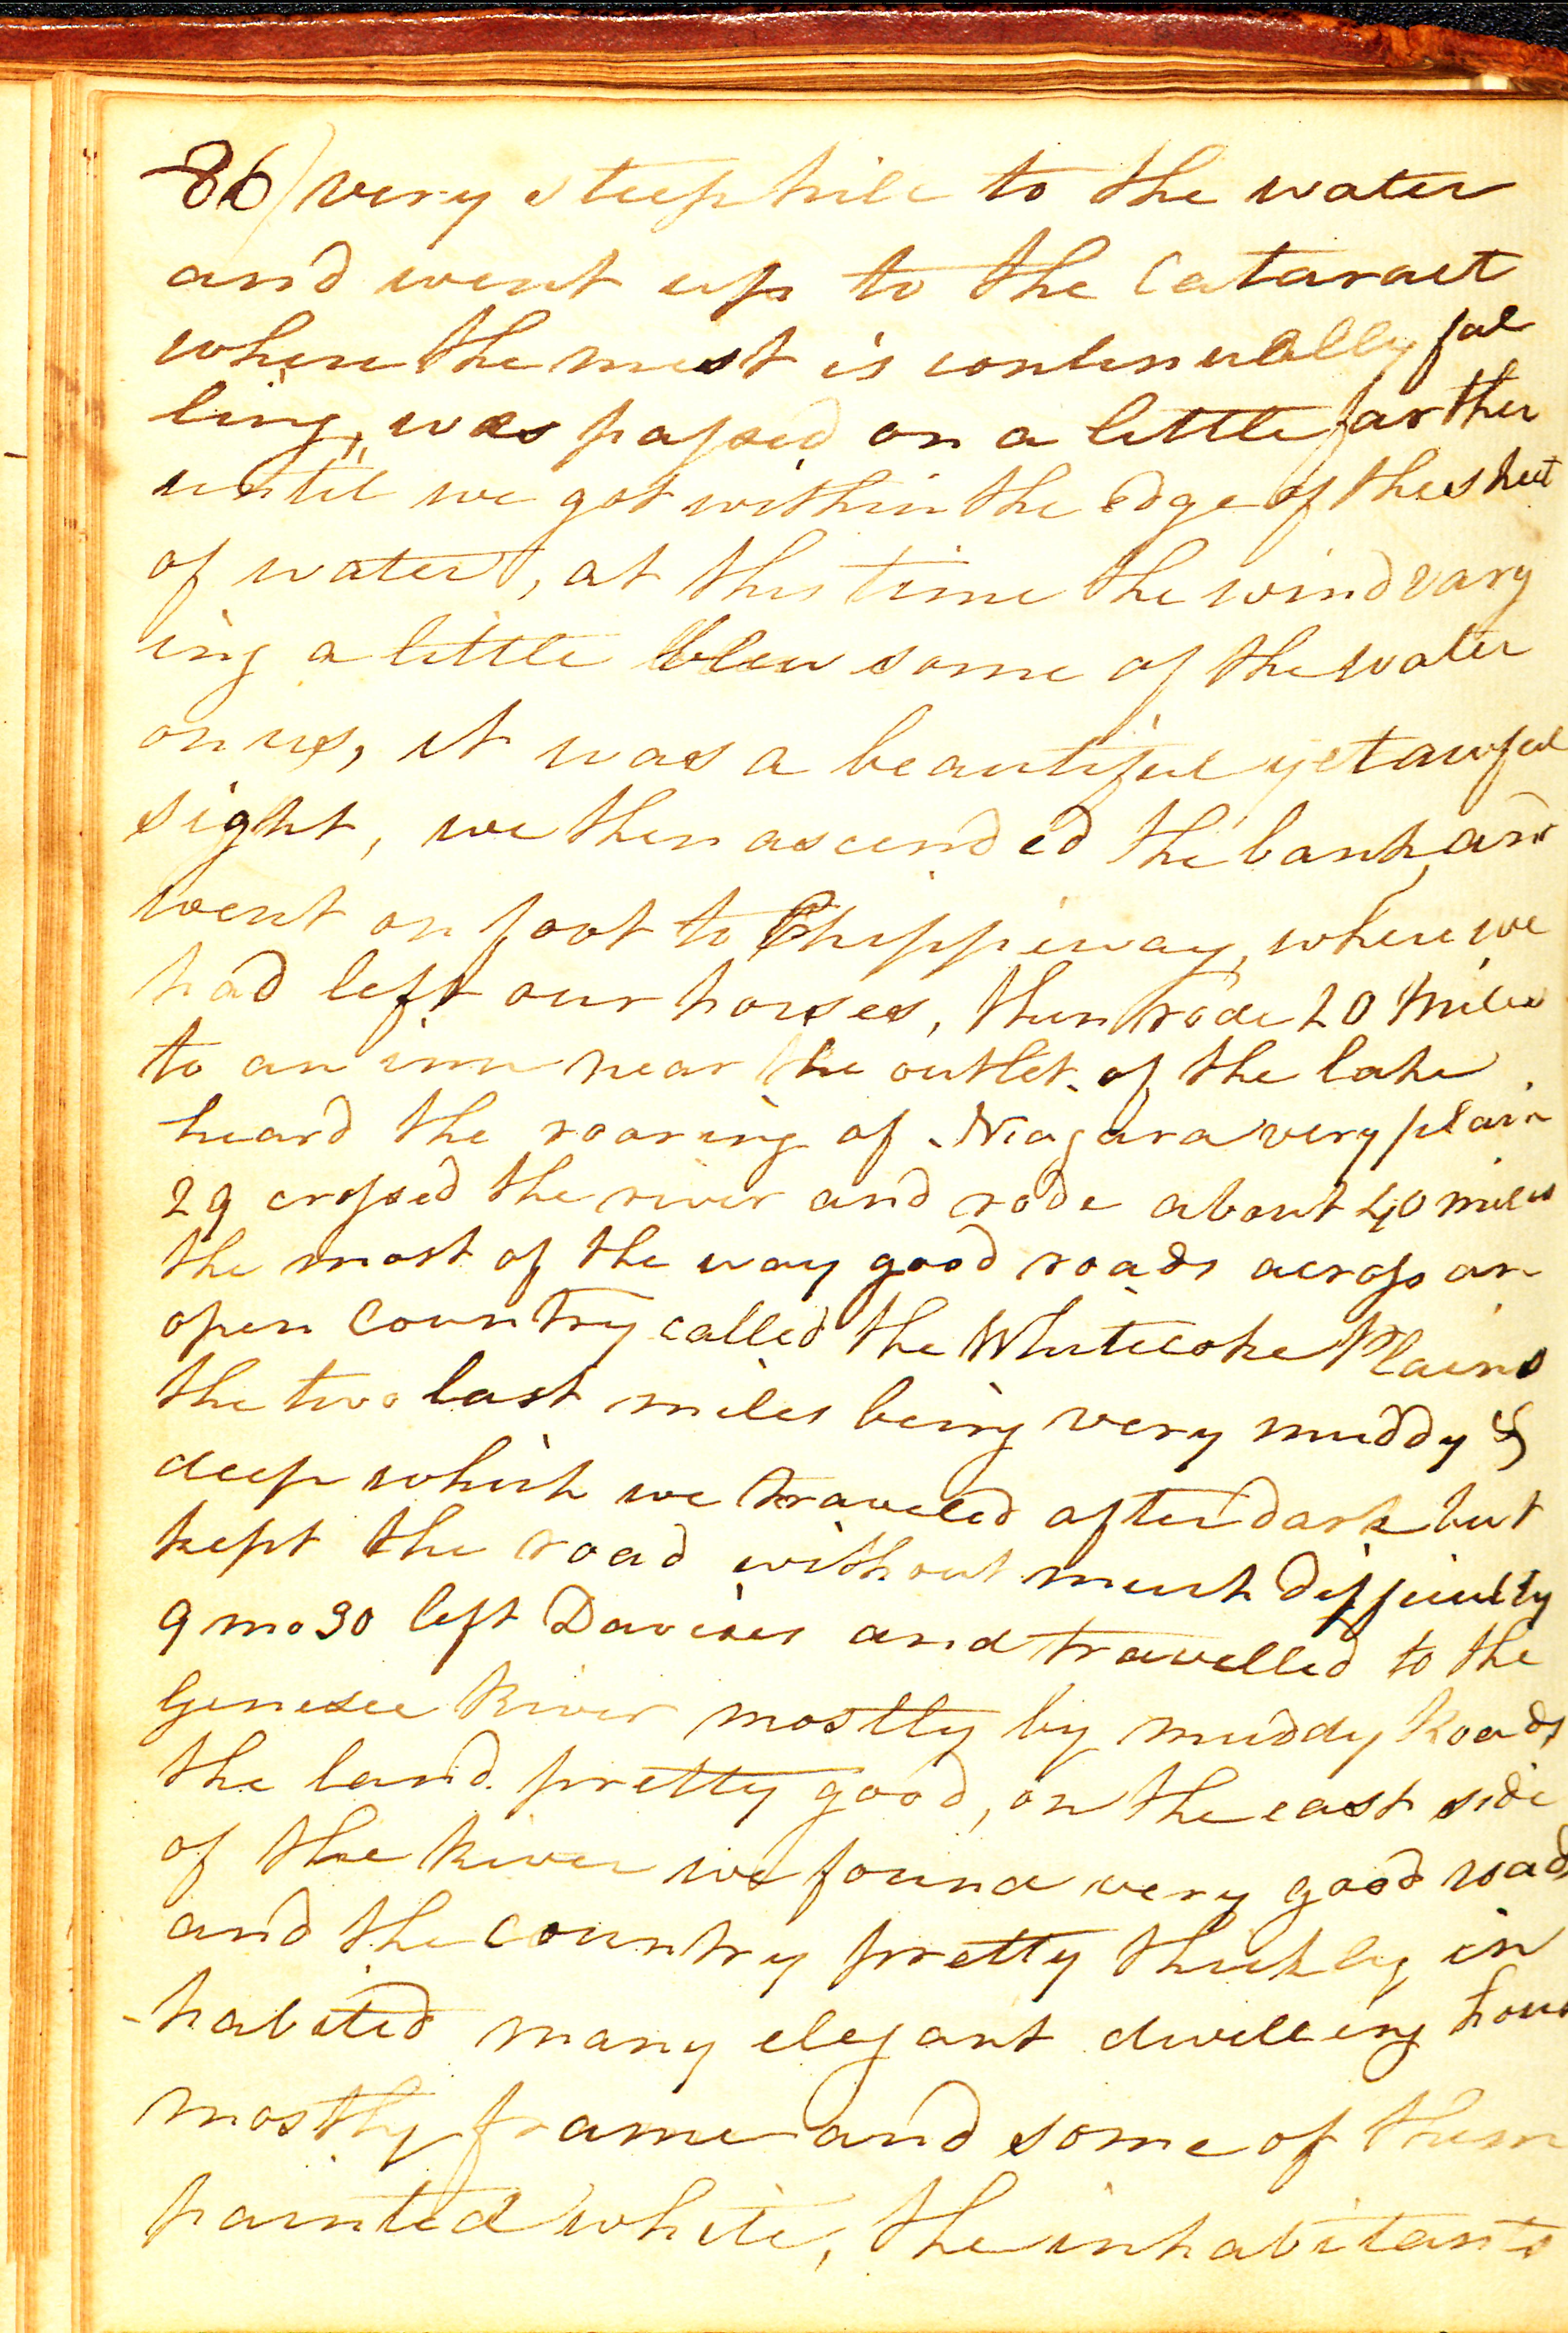 86) very steep hill to the water
and went up to the Cataract
where the mist is continually fal
ling, we passed on a little farther
until we got within the edge of the sheet
of water, at this time the wind vary
ing a little blew some of the water
on us, it was a beautiful yet awful
sight, we then ascended the bank, and
went on foot to Chippeway, where we
had left our horses, then rode 20 miles
to an inn near the outlet of the lake
heard the roaring of Niagara very plain
29 crossed the river and rode about 40 miles
the most of the way good roads across an
open Country called the Plains
the two last miles being very muddy &
deep which we traveled after dark but
kept the road without much difficulty
9 mo 30 left and travelled to the
Genesee River mostly by muddy Roads
the land pretty good, on the east side
of the River we found very good roads
and the Country pretty thickly in
-habited many elegant dwelling hous
mostly frame and some of them
painted white, the inhabitants